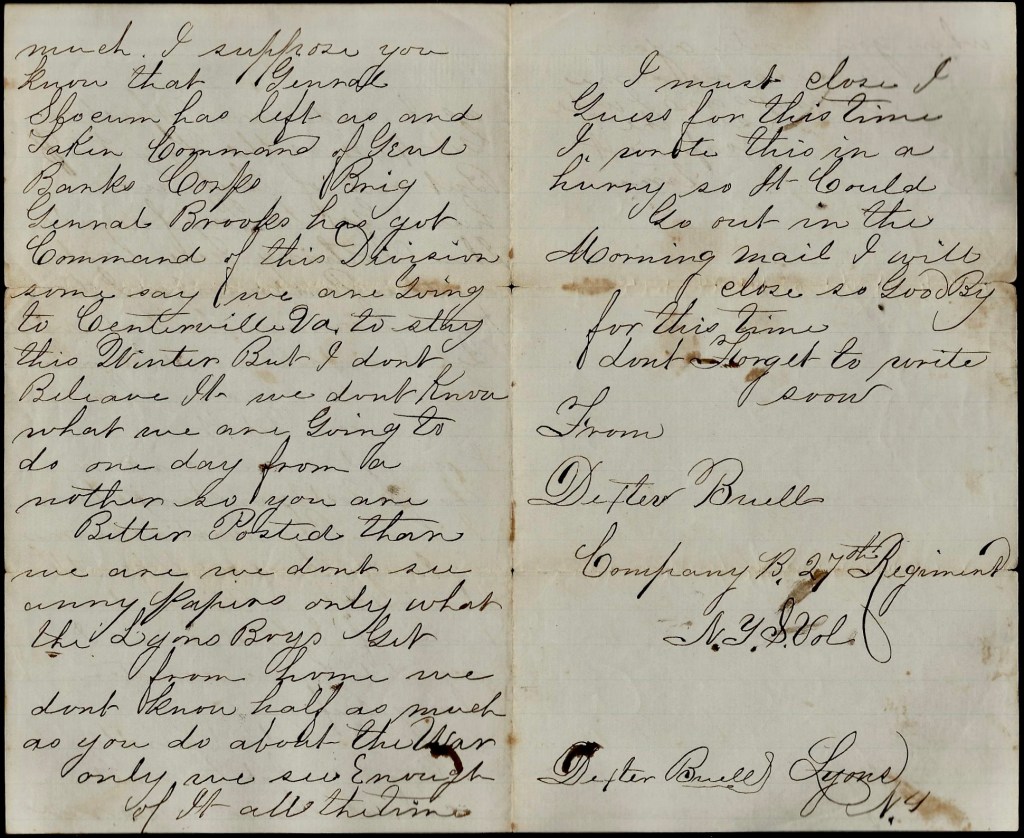 much. I suppose you
know that Genral
Slocum has left as and
Taken Command of Genl
Banks Corps Brig
Genral Brooks has got
Command of this Division
some say we are Going
to Centerville Va, to stay
this Winter But I dont
Beleave It we dont Know
what we are Going to
do one day from a
nother so you are
Bitter Posted than
we are we dont see
anny Papers only what
the Lyons Boys Get
from home we
dont know half as much
as you do about the War
only we see Enough
of It all the time
I must close I
Guess for this time
I wrote this in a
hurry so It Could
Go out in the
Morning mail I will
close so Good By
for this time
dont Forget to write
soon
From
Dexter Buell
Company B. 27th Regiment
N. Y. S. Vol
Dexter Buell Lyons
N. Y